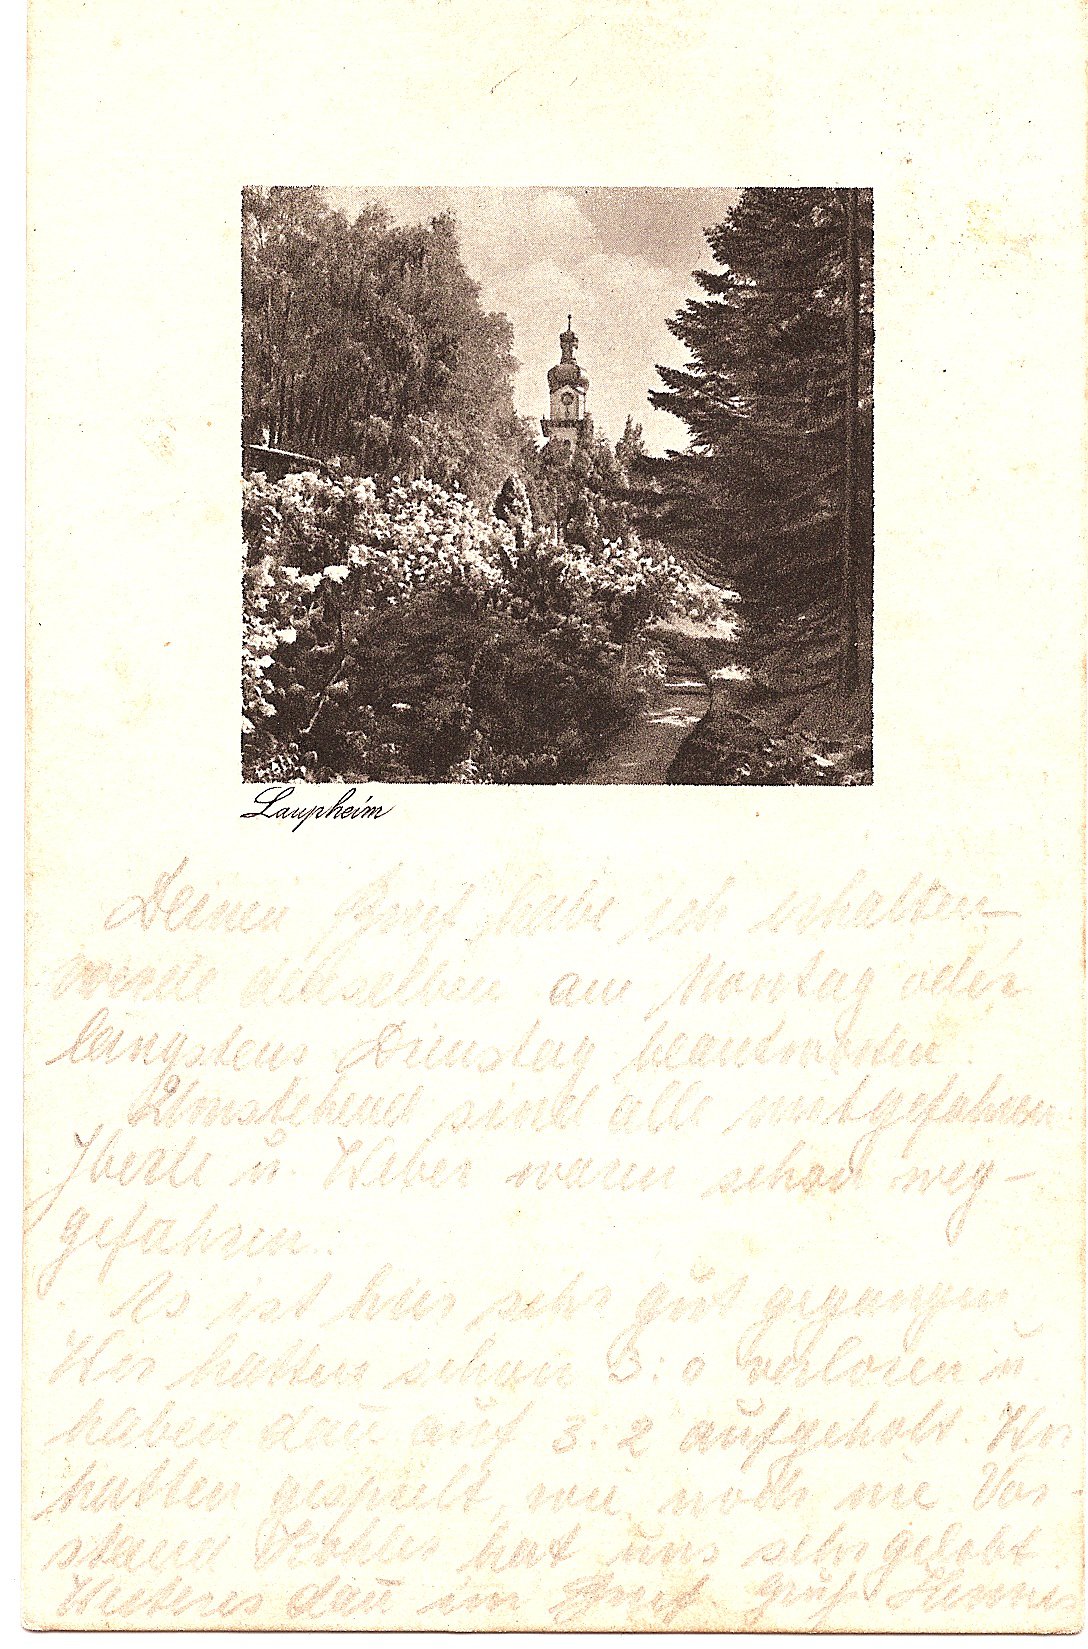 Laupheim
Deinen Brief habe ich erhalten
werde denselben am Montag oder
längstens Dienstag beantworten.
Umstehend sind alle mitgefahren
u. Weber waren schon weg-
gefahren.
Es ist hier sehr gut gegangen
Wir hatten schon 3:0 verloren u.
haben dañ auf 3:2 aufgeholt. Wir
hatten gespielt, wie noch nie. Vor-
stand Kohler hat uns sehr gelobt
Weiteres dañ im Brief. Gruß